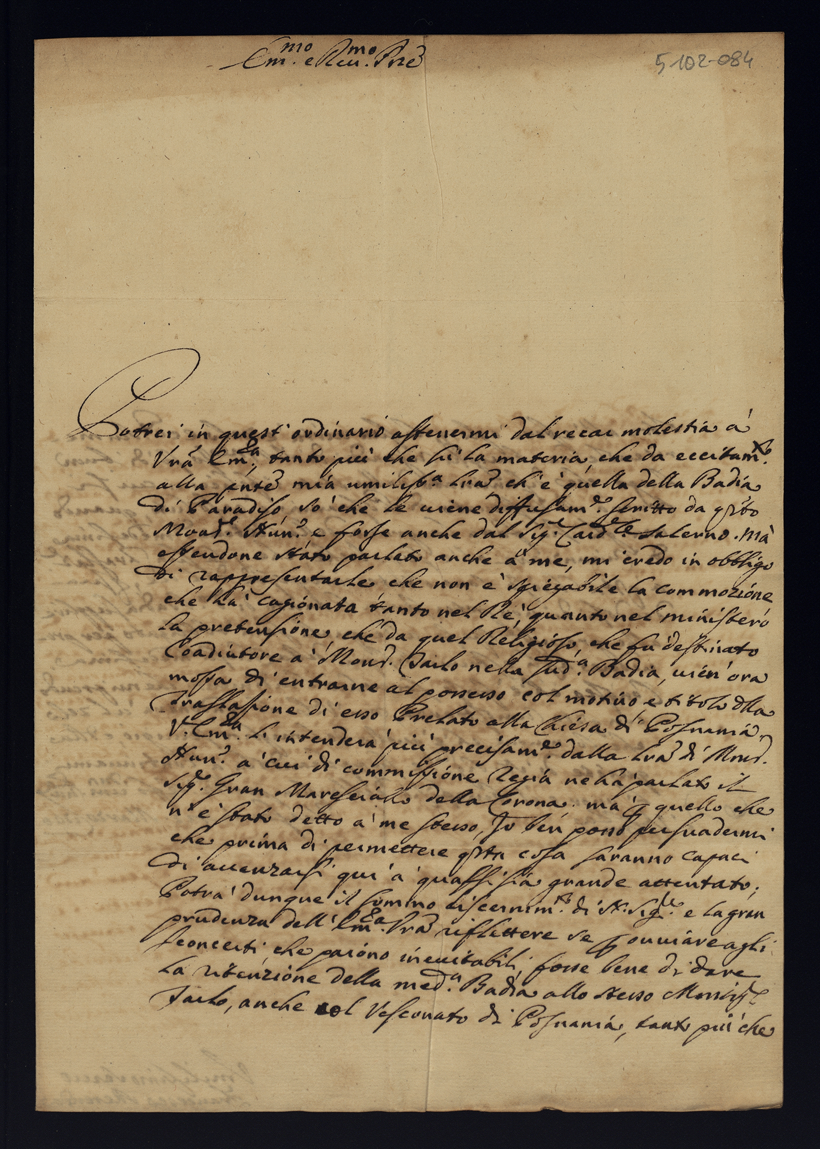 Em.mo e Reu.mo Pnē
5-102-084
Potrei in quest'ordinario astenermi dal recar molestia à
Vrā Em.za, tanto più che sù la materia che da eccitam.to
alla pnte mia umiliss.a lrā ch'è quella della Badia
di Paradiso sò che le viene diffusam.e scritto da qsto
Mons.r Nun.o e forse anche dal Sig.r Card.le Salerno. mà
essendone stato parlato anche à me, mi credo in obbligo
di rappresentarle che non è spiegabile la commozione
che hà cagionata tanto nel Rè, quanto nel ministero
la pretensione, che da quel Religioso, che fù destinato
Coadiutore à Mons.r Tarlo nella sud.a Badia, vien'ora
mossa di entrarne al possesso col motivo e titolo dlla
traslazione di esso Prelato alla Chiesa di Posnania.
V. Em.za lo intenderà più precisam.e dalla lrā di Mons.r
Nun.o à cui di commissione Regia ne hà parlato il
Sig.r Gran Maresciallo della Corona. mà p quello che
n'è stato detto à me stesso, Io ben posso persuadermi
che prima di permettere qsta cosa saranno capaci
di avanzarsi quì à qualsisia grande attentato;
Potrà dunque il sommo discernim.to di N. Sig.re e la gran
prudenza dell'Em.za Vrā riflettere se p ouuiare agli
sconcerti che paiono ineuitabili, fosse bene di dare
la ritenzione della med.a Badia allo stesso Monsig.r
Tarlo, anche col Vescouato di Posnania, tanto più che